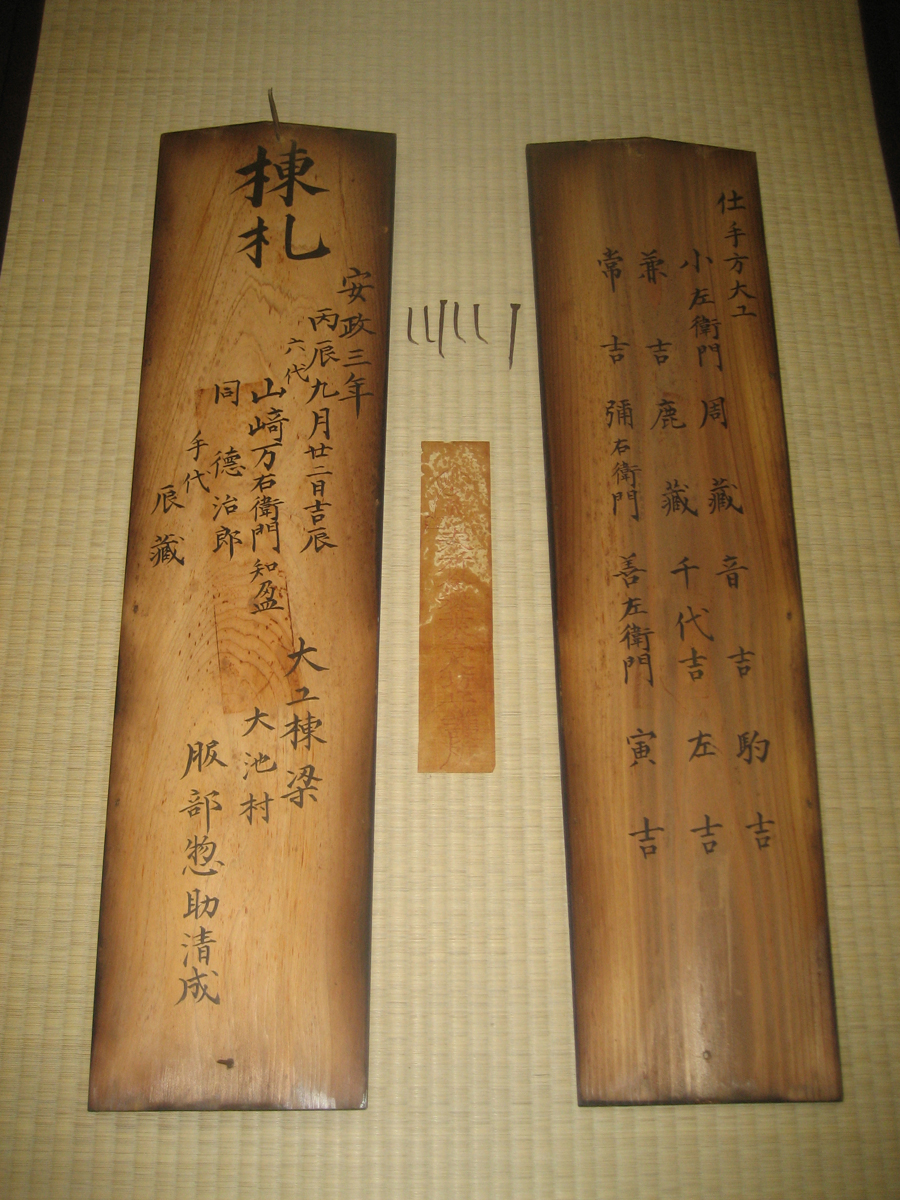 棟札
安政三年
丙辰九月廿二日吉辰
六代
山﨑万右衛門知盈
同 德治郎
手代
辰藏
大工棟梁
大池村
服部惣助清成
仕手方大工
小左衛門 周藏 音吉 駒吉
兼吉 鹿藏 千代吉 左吉
常吉 彌右衛門 善左衛門 寅吉